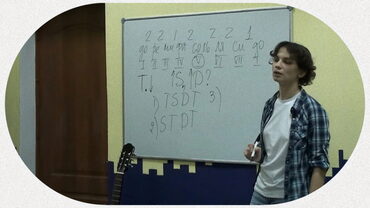 2 2 1 2 2 2 1
до ре ми фа соль ля си до
I II III IV V VI VII I
T.↓ ↑S, ↑D?
1) TSDT 3)
2) STDT